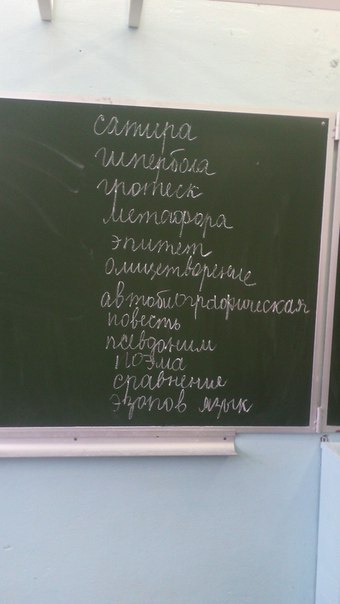 сатира
гипербола
гротеск
метафора
эпитет
олицетворение
автобиографическая
повесть
псевдоним
поэма
сравнение
эзопов язык